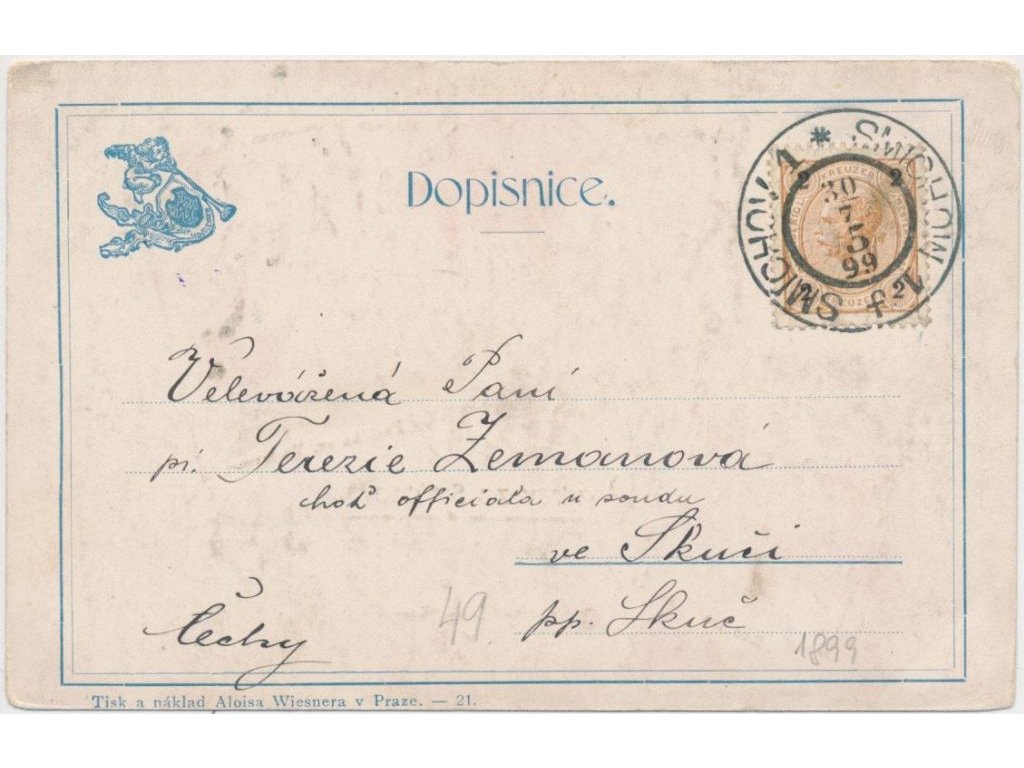 Dopisnice.
SMICHOW 1 * SMÍCHOV 1
2 KREUZER 2
30
7
5
99
2 KREUZER 2
Velevážená Paní
pí. Terezie Zemanová
choť officiala u soudu
ve Skuči
pp. Skuč
Čechy
49
1899
Tisk a náklad Aloisa Wiesnera v Praze. — 21.